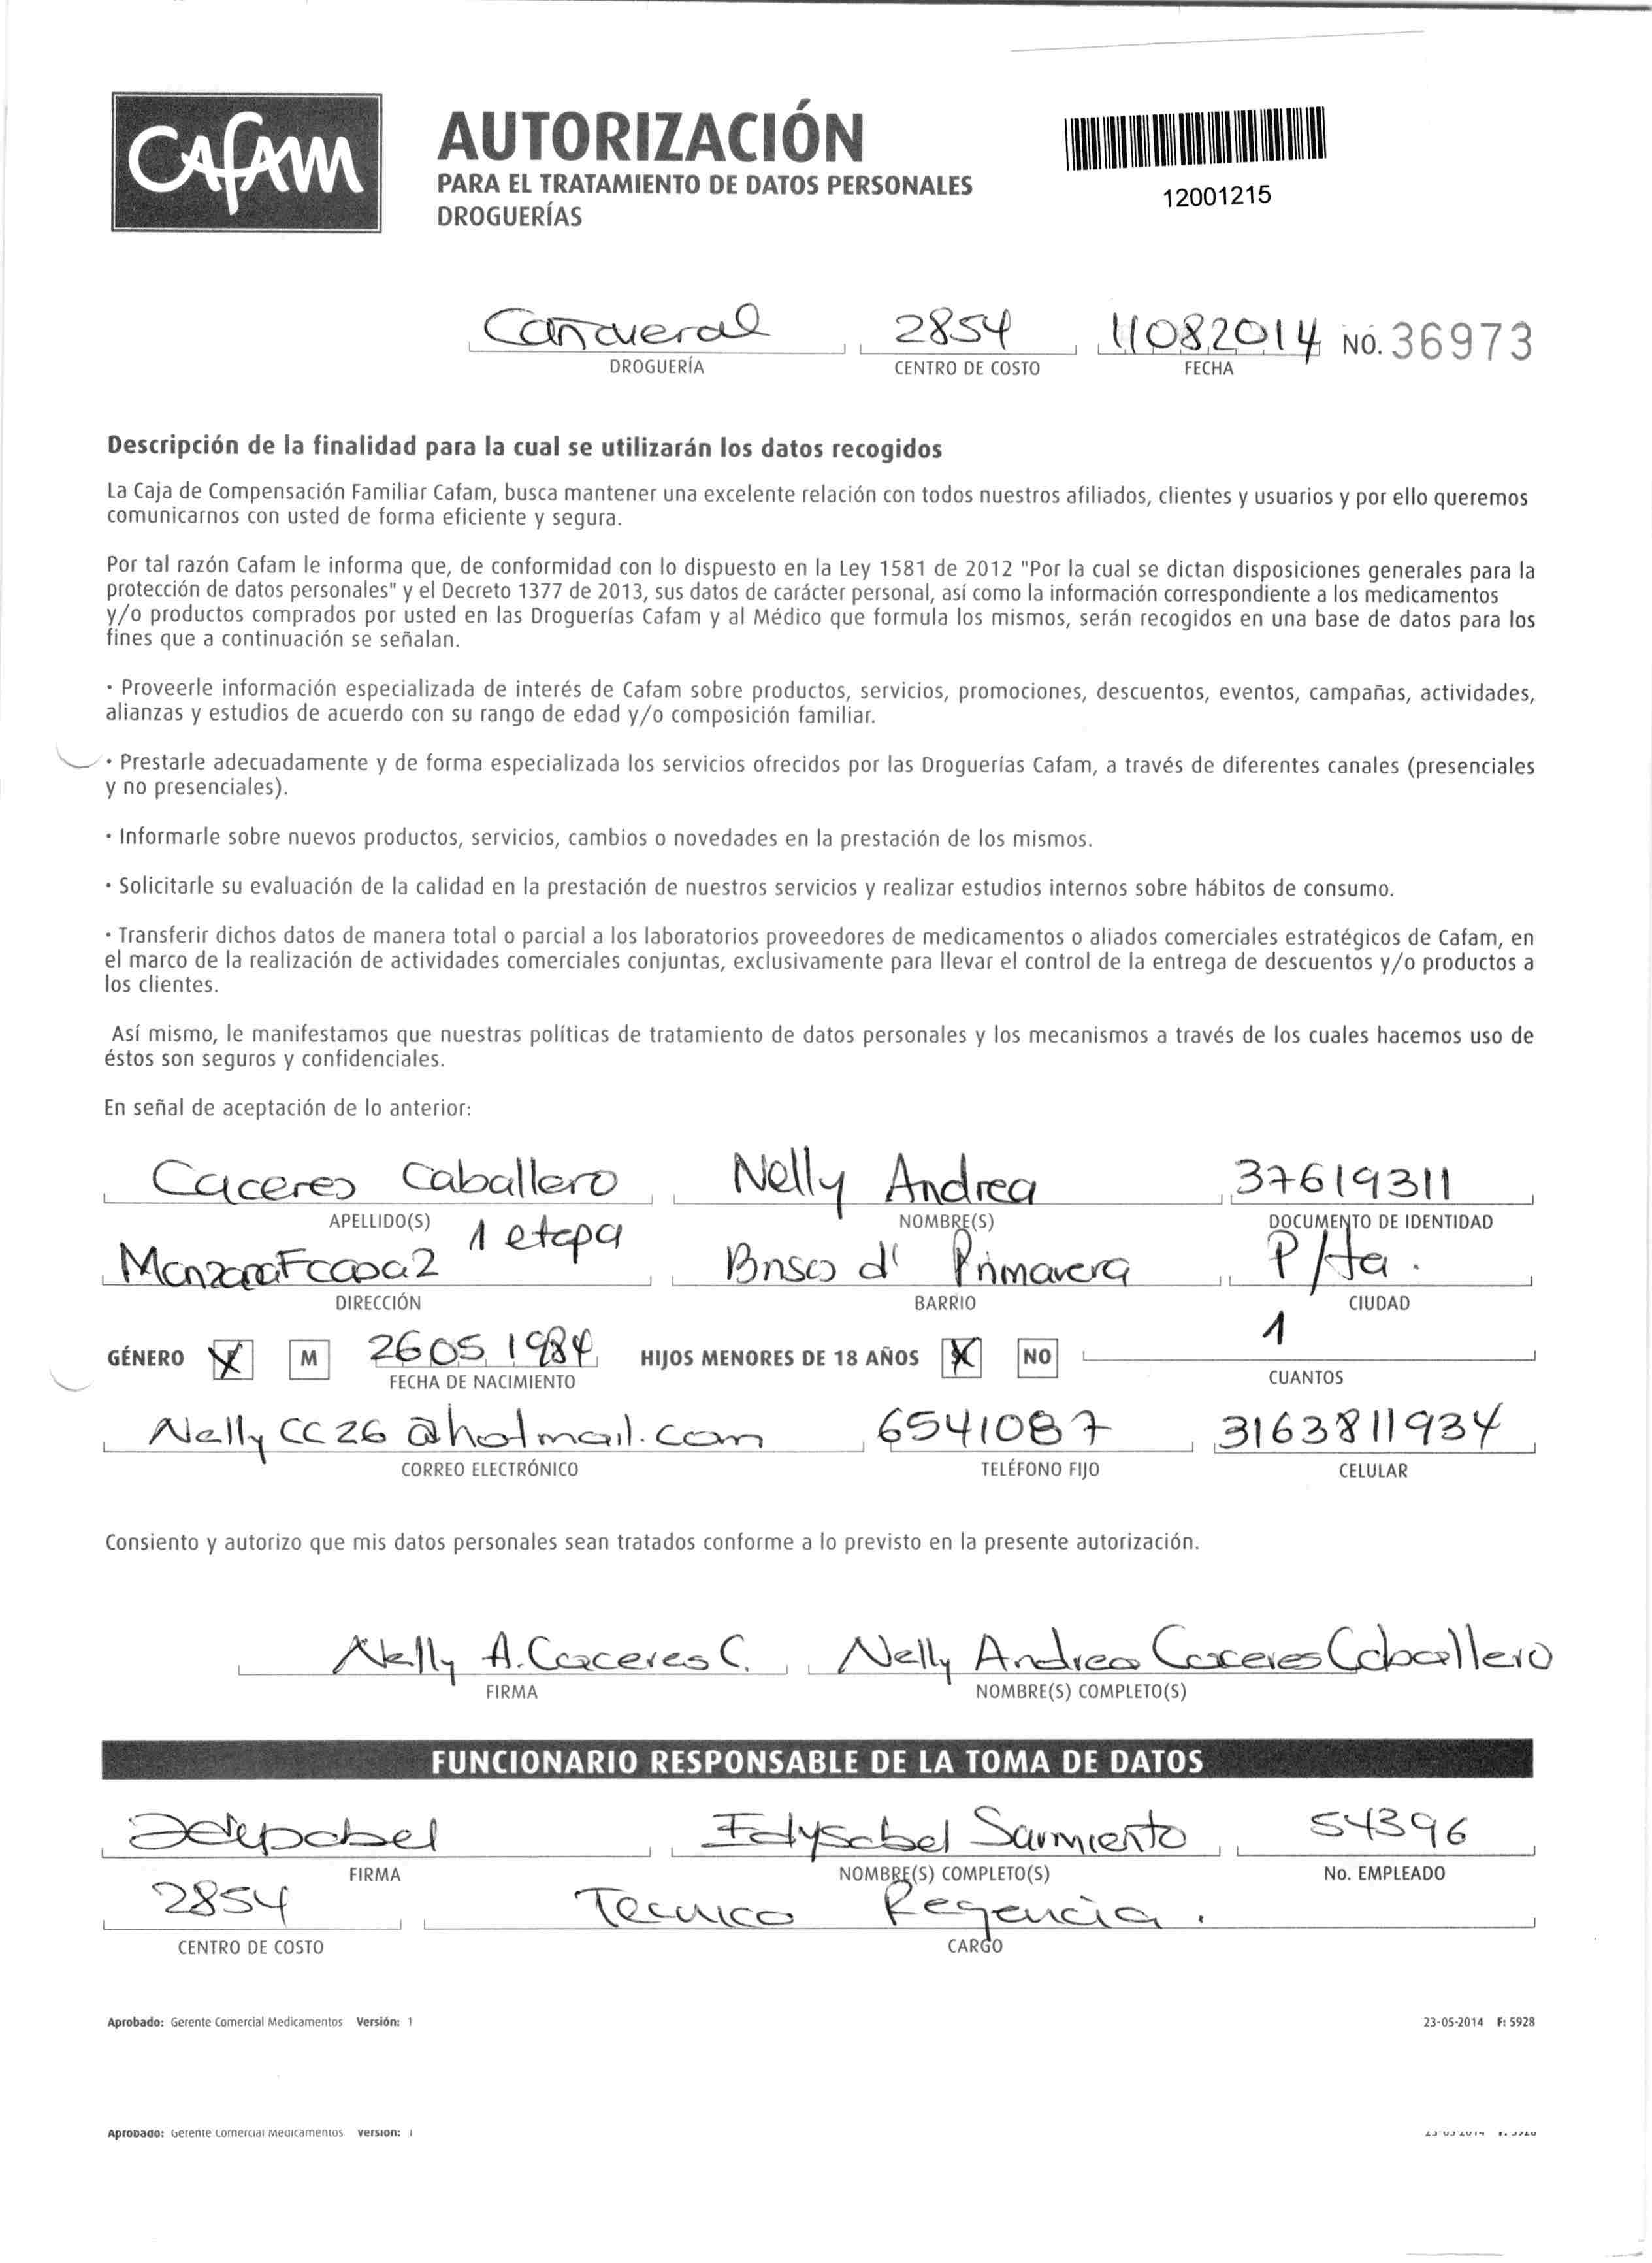 CAFAM
AUTORIZACIÓN
PARA EL TRATAMIENTO DE DATOS PERSONALES
DROGUERÍAS
12001215
Canaveral 2854 11082014 NO. 36973
DROGUERÍA CENTRO DE COSTO FECHA
Descripción de la finalidad para la cual se utilizarán los datos recogidos
La Caja de Compensación Familiar Cafam, busca mantener una excelente relación con todos nuestros afiliados, clientes y usuarios y por ello queremos
comunicarnos con usted de forma eficiente y segura.
Por tal razón Cafam le informa que, de conformidad con lo dispuesto en la Ley 1581 de 2012 "Por la cual se dictan disposiciones generales para la
protección de datos personales" y el Decreto 1377 de 2013, sus datos de carácter personal, así como la información correspondiente a los medicamentos
y/o productos comprados por usted en las Droguerías Cafam y al Médico que formula los mismos, serán recogidos en una base de datos para los
fines que a continuación se señalan.
· Proveerle información especializada de interés de Cafam sobre productos, servicios, promociones, descuentos, eventos, campañas, actividades,
alianzas y estudios de acuerdo con su rango de edad y/o composición familiar.
· Prestarle adecuadamente y de forma especializada los servicios ofrecidos por las Droguerías Cafam, a través de diferentes canales (presenciales
y no presenciales).
· Informarle sobre nuevos productos, servicios, cambios o novedades en la prestación de los mismos.
· Solicitarle su evaluación de la calidad en la prestación de nuestros servicios y realizar estudios internos sobre hábitos de consumo.
· Transferir dichos datos de manera total o parcial a los laboratorios proveedores de medicamentos o aliados comerciales estratégicos de Cafam, en
el marco de la realización de actividades comerciales conjuntas, exclusivamente para llevar el control de la entrega de descuentos y/o productos a
los clientes.
Así mismo, le manifestamos que nuestras políticas de tratamiento de datos personales y los mecanismos a través de los cuales hacemos uso de
éstos son seguros y confidenciales.
En señal de aceptación de lo anterior:
Caceres Caballero Nelly Andrea 37619311
APELLIDO(S) NOMBRE(S) DOCUMENTO DE IDENTIDAD
1 etapa
Manzana F casa 2 Bnsco d' Primavera P/ta.
DIRECCIÓN BARRIO CIUDAD
GÉNERO X M 26 05 1984 HIJOS MENORES DE 18 AÑOS X NO 1
FECHA DE NACIMIENTO CUANTOS
Nellycc26@hotmail.com 6541087 3163811934
CORREO ELECTRÓNICO TELÉFONO FIJO CELULAR
Consiento y autorizo que mis datos personales sean tratados conforme a lo previsto en la presente autorización.
Nelly A. Caceres C. Nelly Andrea Caceres Caballero
FIRMA NOMBRE(S) COMPLETO(S)
FUNCIONARIO RESPONSABLE DE LA TOMA DE DATOS
Sarmiento 54396
FIRMA NOMBRE(S) COMPLETO(S) No. EMPLEADO
2854 Tecnico Regencia.
CENTRO DE COSTO CARGO
Aprobado: Gerente Comercial Medicamentos Versión: 1 23-05-2014 F: 5928
Aprobado: Gerente Comercial Medicamentos Versión: 1 23-05-2014 F: 5928